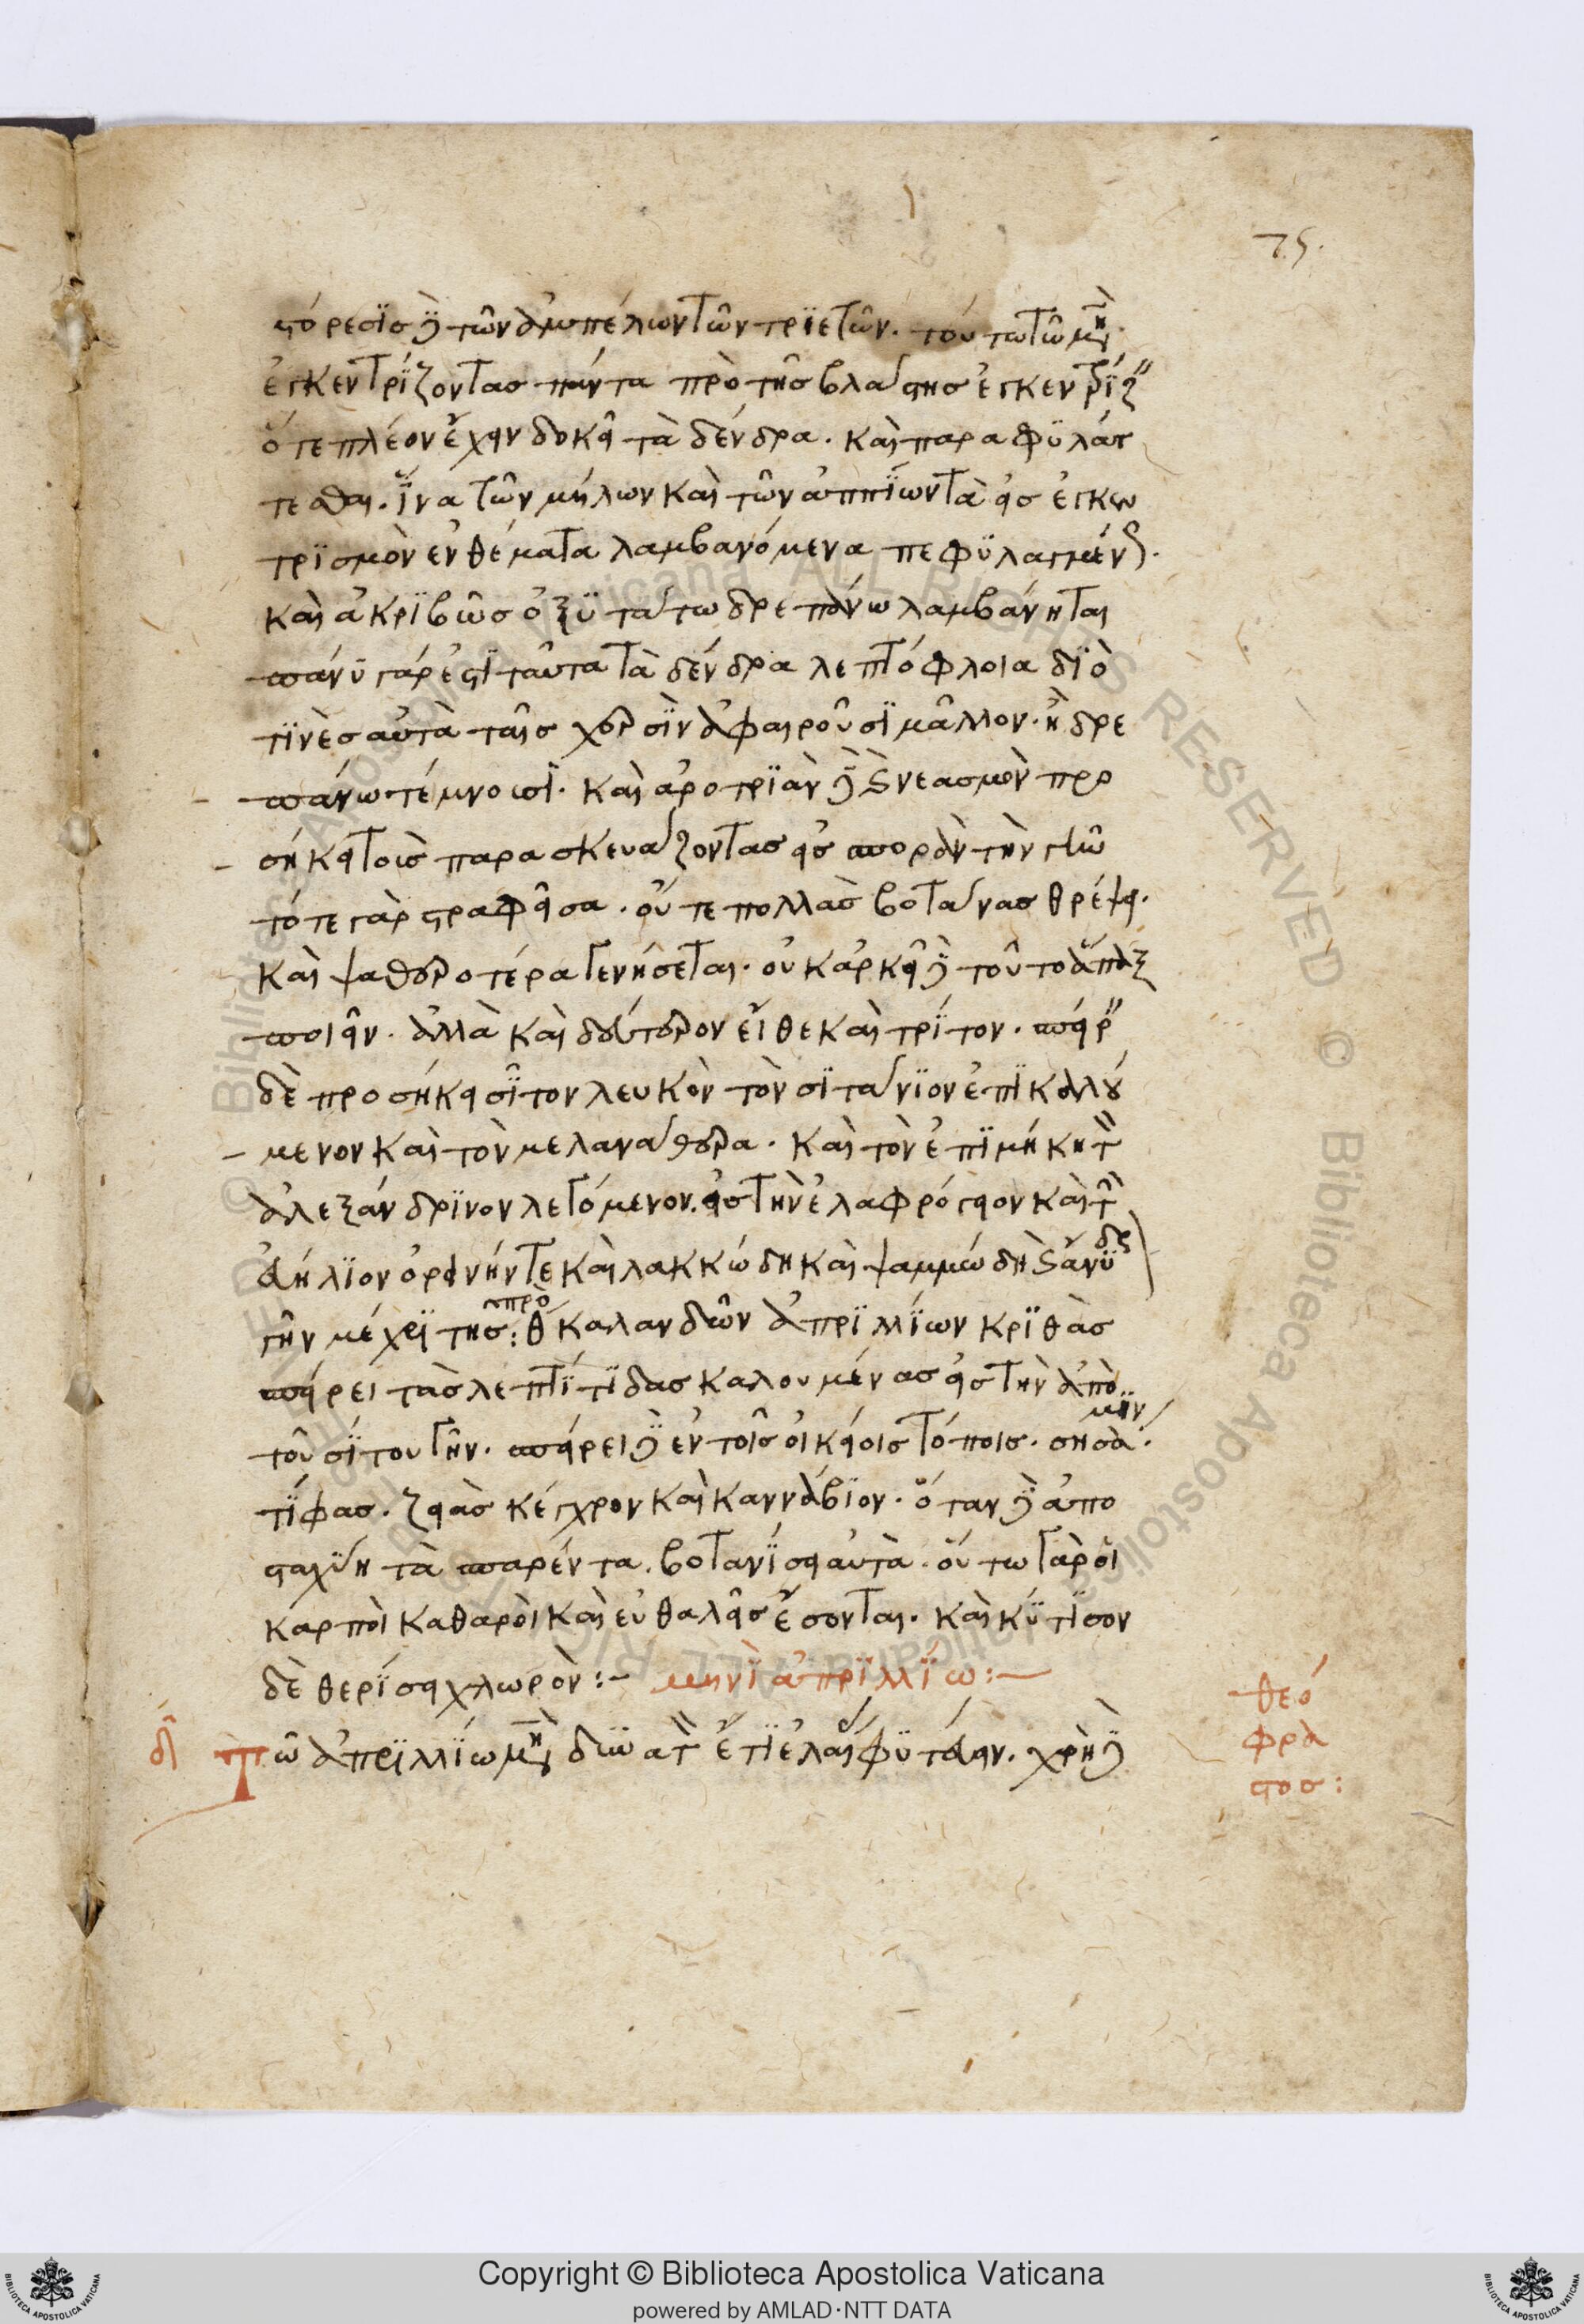 75.
στόρεσϊσ δὲ τῶν ἀμπέλων τῶν τρϊετῶν. τούτω τῶ μηνὶ
ἐγκεντρΐζοντασ πάντα πρὸ τῆσ βλάστησ ἐγκεντρΐζ
ὅτε πλέον ἔχειν δοκεῖ τὰ δένδρα. καὶ παραφϋλάτ
τεσθαι. ἵνα τῶν μήλων καὶ τῶν ἀππΐων τὰ εἰσ ἐγκεν
τρϊσμὸν ἐνθέματα λαμβανόμενα πεφϋλαγμένως.
καὶ ἀκρϊβῶσ ὀξϋτάτω δρεπάνω λαμβάνηται
πάνϋ γάρ ἐστϊ ταῦτα τὰ δένδρα λεπτόφλοια δϊὸ
τϊνὲσ αὐτὰ ταῖσ χερσῒν ἀφαιροῦσϊ μᾶλλον. ἢ δρε
πάνω τέμνουσϊ. καὶ ἀροτρϊᾶν δὲ καὶ νεασμὸν προ
σήκει τοῖσ παρασκευάζοντασ εἰσ σπορὰν τὴν γῆν
τότε γὰρ στραφεῖσα. οὔτε πολλὰσ βοτάνασ θρέψει.
καὶ ψαθερωτέρα γενήσεται. οὐκ ἀρκεῖ δὲ τοῦτο ἅπαξ
ποιεῖν. ἀλλὰ καὶ δεύτερον εἶθε καὶ τρΐτον. σπείρ
δὲ προσήκει σῖτον λευκὸν τὸν σϊτάνϊον ἐπϊκαλού
μενον καὶ τὸν μελαναθέρα. καὶ τὸν ἐπϊμήκη τὸν
ἀλεξάνδρϊνον λεγόμενον. εἰσ τὴν ἐλαφρόγειον καὶ τὴν
ἀήλϊον ὀρφνήν τε καὶ λακκώδη καὶ ψαμμώδη καὶ ἄνϋδρ
γῆν μέχρϊ τῆσ: πρὸ θ καλανδῶν ἀπρϊλλΐων κρϊθὰσ
σπείρει τὰσ λεπτΐτϊδασ καλουμένασ εἰσ τὴν ἀπὸ
τοῦ σΐτου γῆν. σπείρει δὲ ἐν τοῖσ οἰκείοισ τόποισ. σησάμϊν.
τΐφασ. ζειὰσ κέγχρον καὶ καννάβϊον. ὅταν δὲ ἀπο
σταχύη τὰ σπαρέντα. βοτανΐσει αὐτὰ. οὕτω γὰρ οἱ
καρποὶ καθαροὶ καὶ εὐθαλεῖσ ἔσονται. καὶ κΰτϊσον
δὲ θερΐσει χλωρὸν:– μηνῒ ἀπρϊλλΐω:–
Τῶ ἀπρϊλλΐω μηνὶ
θεό
φρα
στοσ: